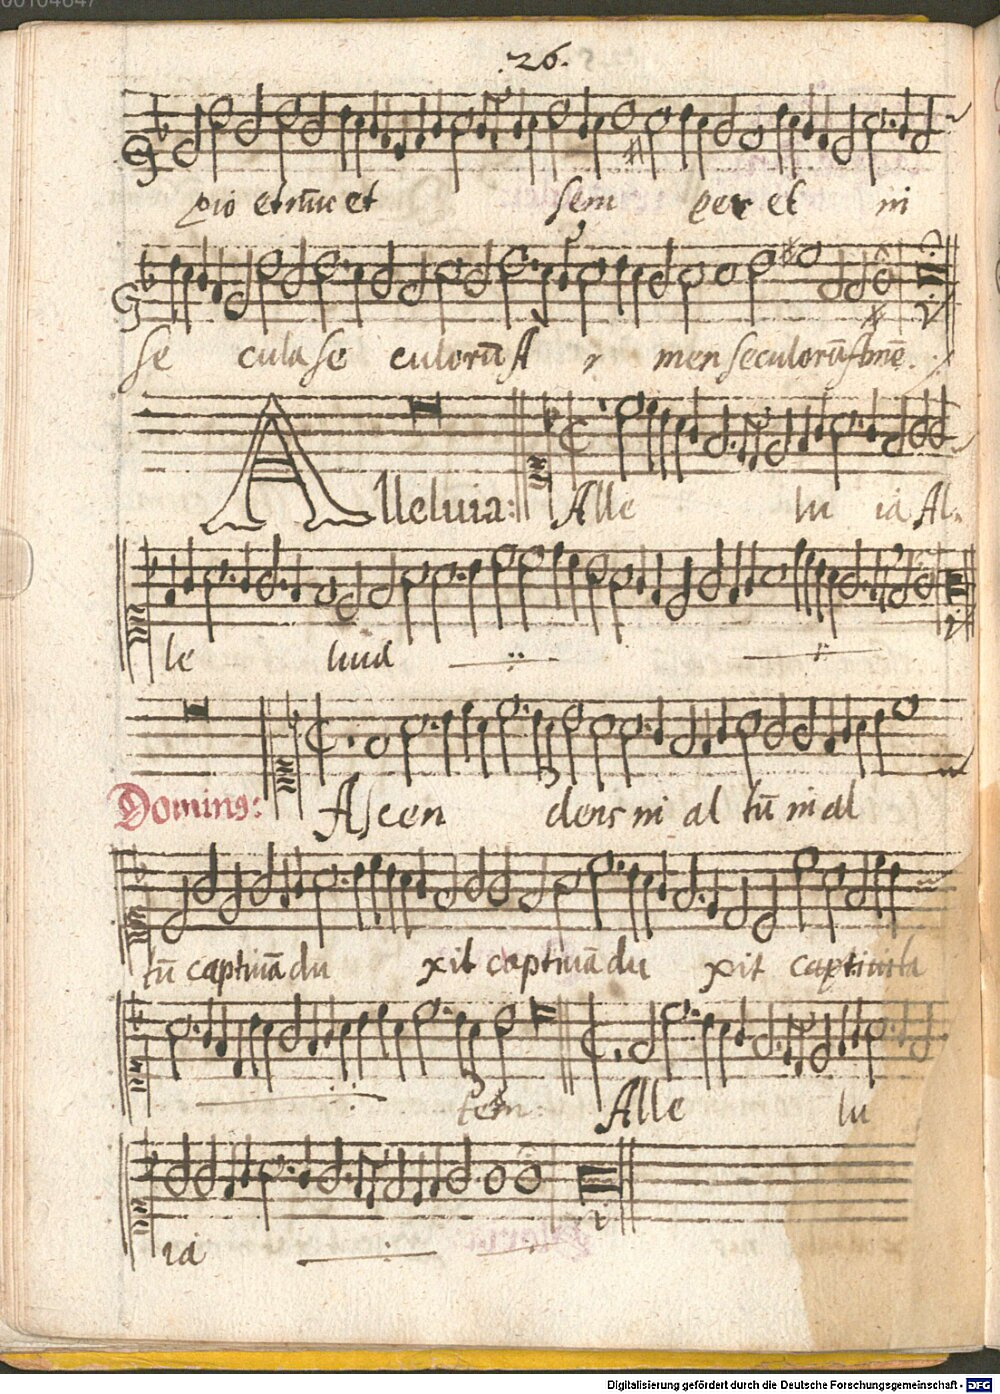 00104647
.26.
pio et nūc et sem per et in
se cula se culorū A men seculorū Amē.
Alleluia: Alle lu ia Al.
le luia
Doming: Ascen dens in al tū in al
tū captiuā du xit captiuā du xit captiuita
tem: Alle lu
ia
Digitalisierung gefördert durch die Deutsche Forschungsgemeinschaft - DFG